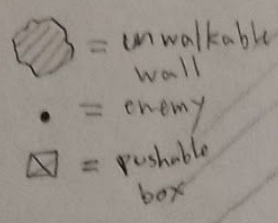 = unwalkable
wall
= enemy
= pushable
box